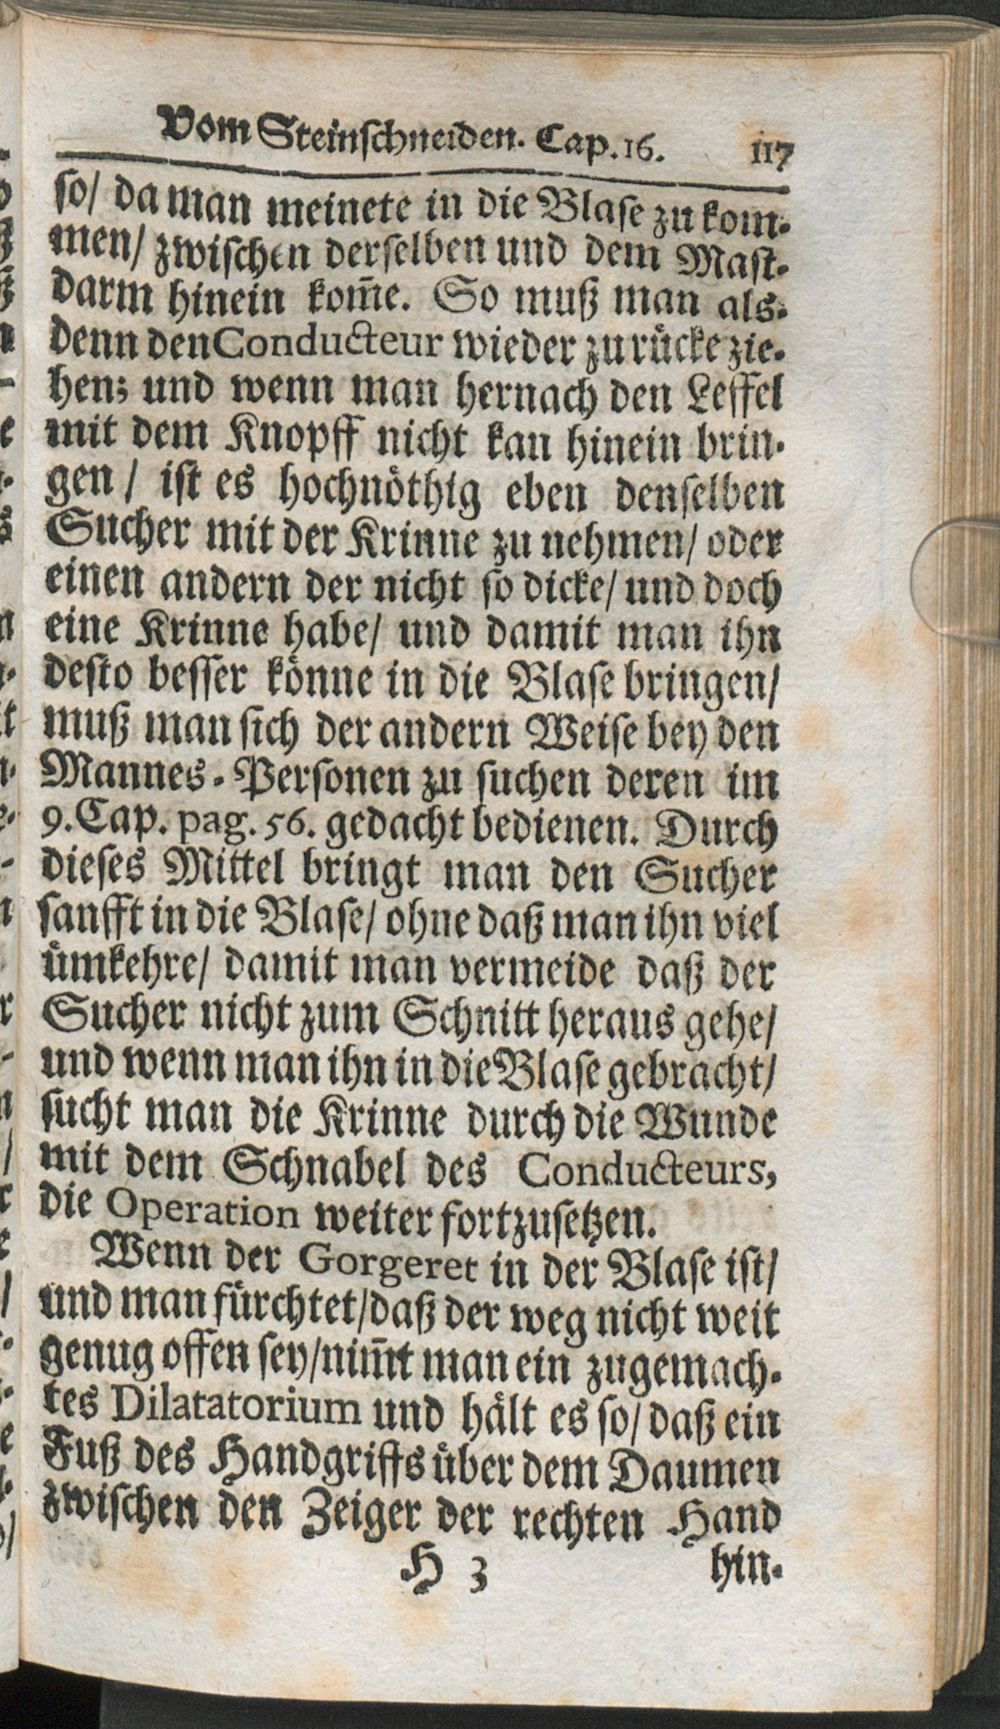 Vom Steinschneiden. Cap. 16. 117
so/ da man meinete in die Blase zu kom-
men/ zwischen derselben und dem Mast-
darm hinein kom̃e. So muß man als-
denn den Conducteur wieder zu rücke zie-
hen; und wenn man hernach den Leffel
mit dem Knopff nicht kan hinein brin-
gen / ist es hochnöthig eben denselben
Sucher mit der Krinne zu nehmen/ oder
einen andern der nicht so dicke/ und doch
eine Krinne habe/ und damit man ihn
desto besser könne in die Blase bringen/
muß man sich der andern Weise bey den
Mannes-Personen zu suchen deren im
9. Cap. pag. 56. gedacht bedienen. Durch
dieses Mittel bringt man den Sucher
sanfft in die Blase/ ohne daß man ihn viel
ümkehre/ damit man vermeide daß der
Sucher nicht zum Schnitt heraus gehe/
und wenn man ihn in die Blase gebracht/
sucht man die Krinne durch die Wunde
mit dem Schnabel des Conducteurs,
die Operation weiter fortzusetzen.
Wenn der Gorgeret in der Blase ist/
und man fürchtet/ daß der weg nicht weit
genug offen sey/ nim̃t man ein zugemach-
tes Dilatatorium und hält es so/ daß ein
Fuß des Handgriffs über dem Daumen
zwischen den Zeiger der rechten Hand
H 3 hin-